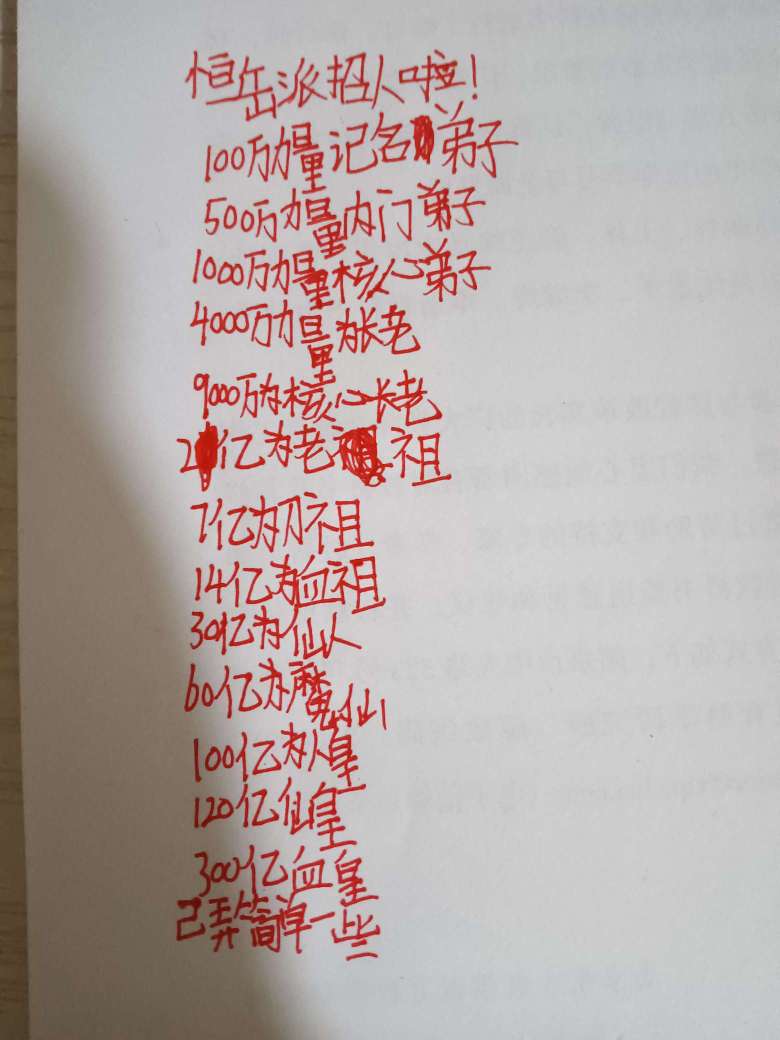 恒岳派招人啦！
100万力量记名弟子
500万力量内门弟子
1000万力量核心弟子
4000万力量为长老
9000万为核心长老
2亿为老祖
7亿为刀祖
14亿为血祖
30亿为仙人
60亿为魔仙
100亿为人皇
120亿仙皇
300亿血皇
已弄简单一些